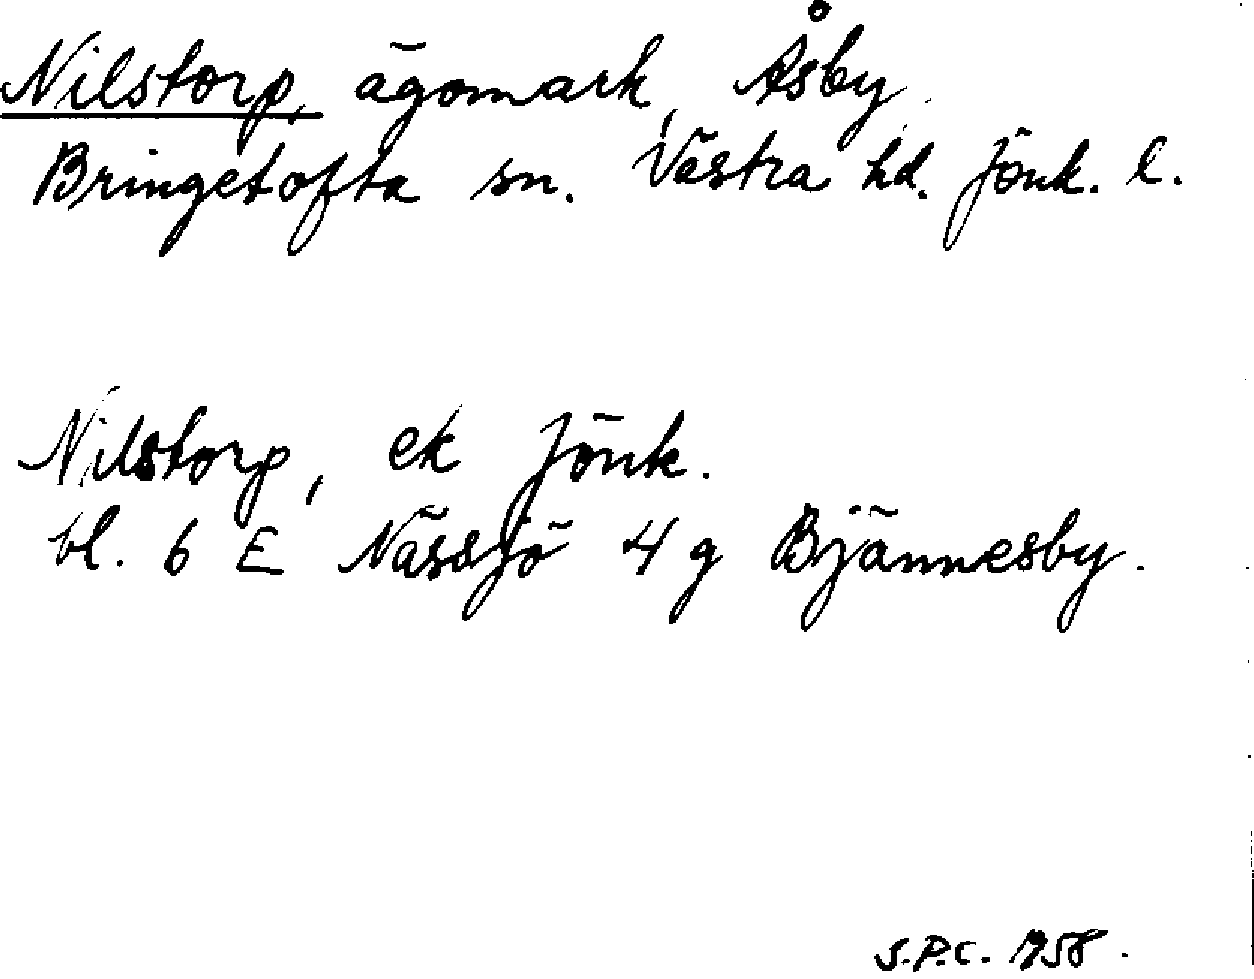 Nilstorp, ägomark, Åsby
Bringetofta sn. Västra hd. Jönk. l.
Nilstorp, ek Jönk.
bl. 6 E Nässjö 4 g Bjännesby.
S.P.C. 1958.